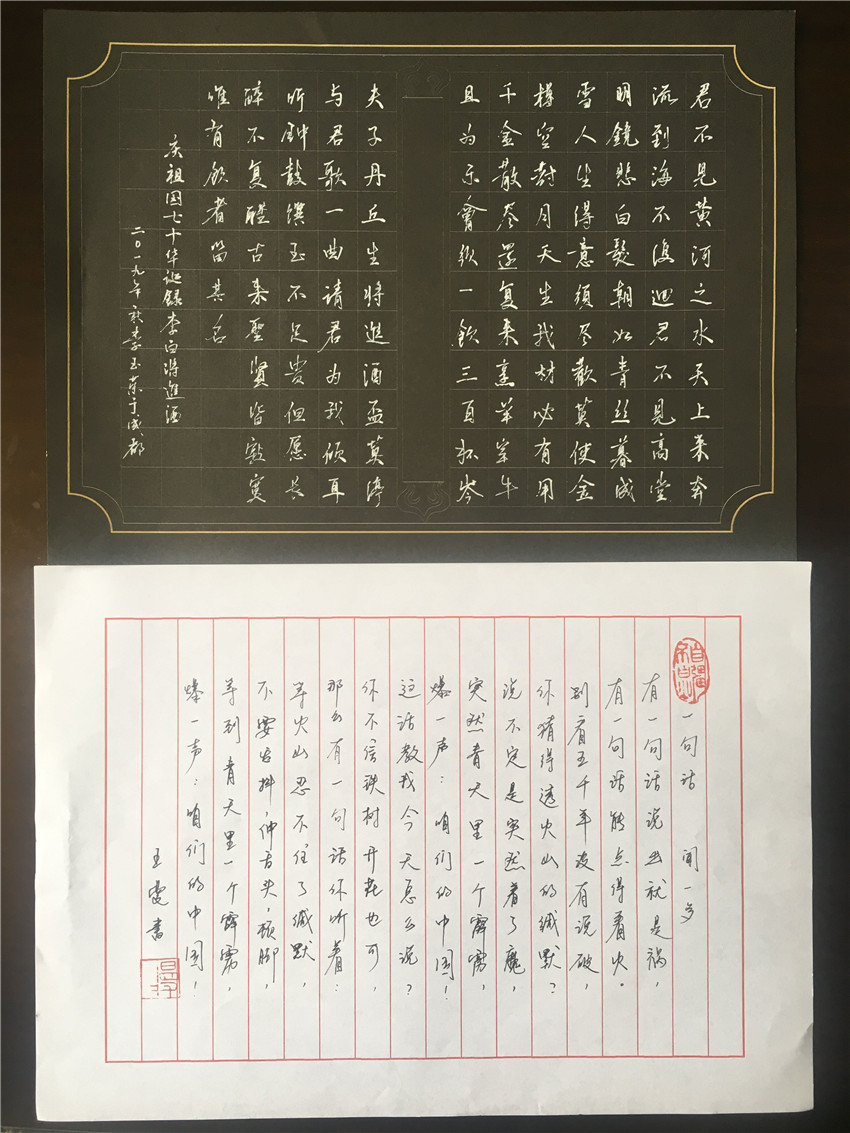 君不見黄河之水天上来奔
流到海不復迴君不見高堂
明鏡悲白髮朝如青丝暮成
雪人生得意須尽歡莫使金
樽空對月天生我材必有用
千金散尽還复来烹羊宰牛
且为乐會須一飲三百杯岑
夫子丹丘生将進酒盃莫停
与君歌一曲请君为我倾耳
听鐘鼓馔玉不足貴但愿长
醉不复醒古来聖賢皆寂寞
唯有飲者留其名
庆祖国七十华诞録李白将進酒
二〇一九年秋李玉蓉于成都
一句话 闻一多
有一句话说出就是祸，
有一句话能点得着火。
别看五千年没有说破，
你猜得透火山的缄默？
说不定是突然着了魔，
突然青天里一个霹雳，
爆一声：咱们的中国！
这话教我今天怎么说？
你不信铁树开花也可，
那么有一句话你听着：
等火山忍不住了缄默，
不要发抖，伸舌头，顿脚，
等到青天里一个霹雳，
爆一声：咱们的中国！
王雯書